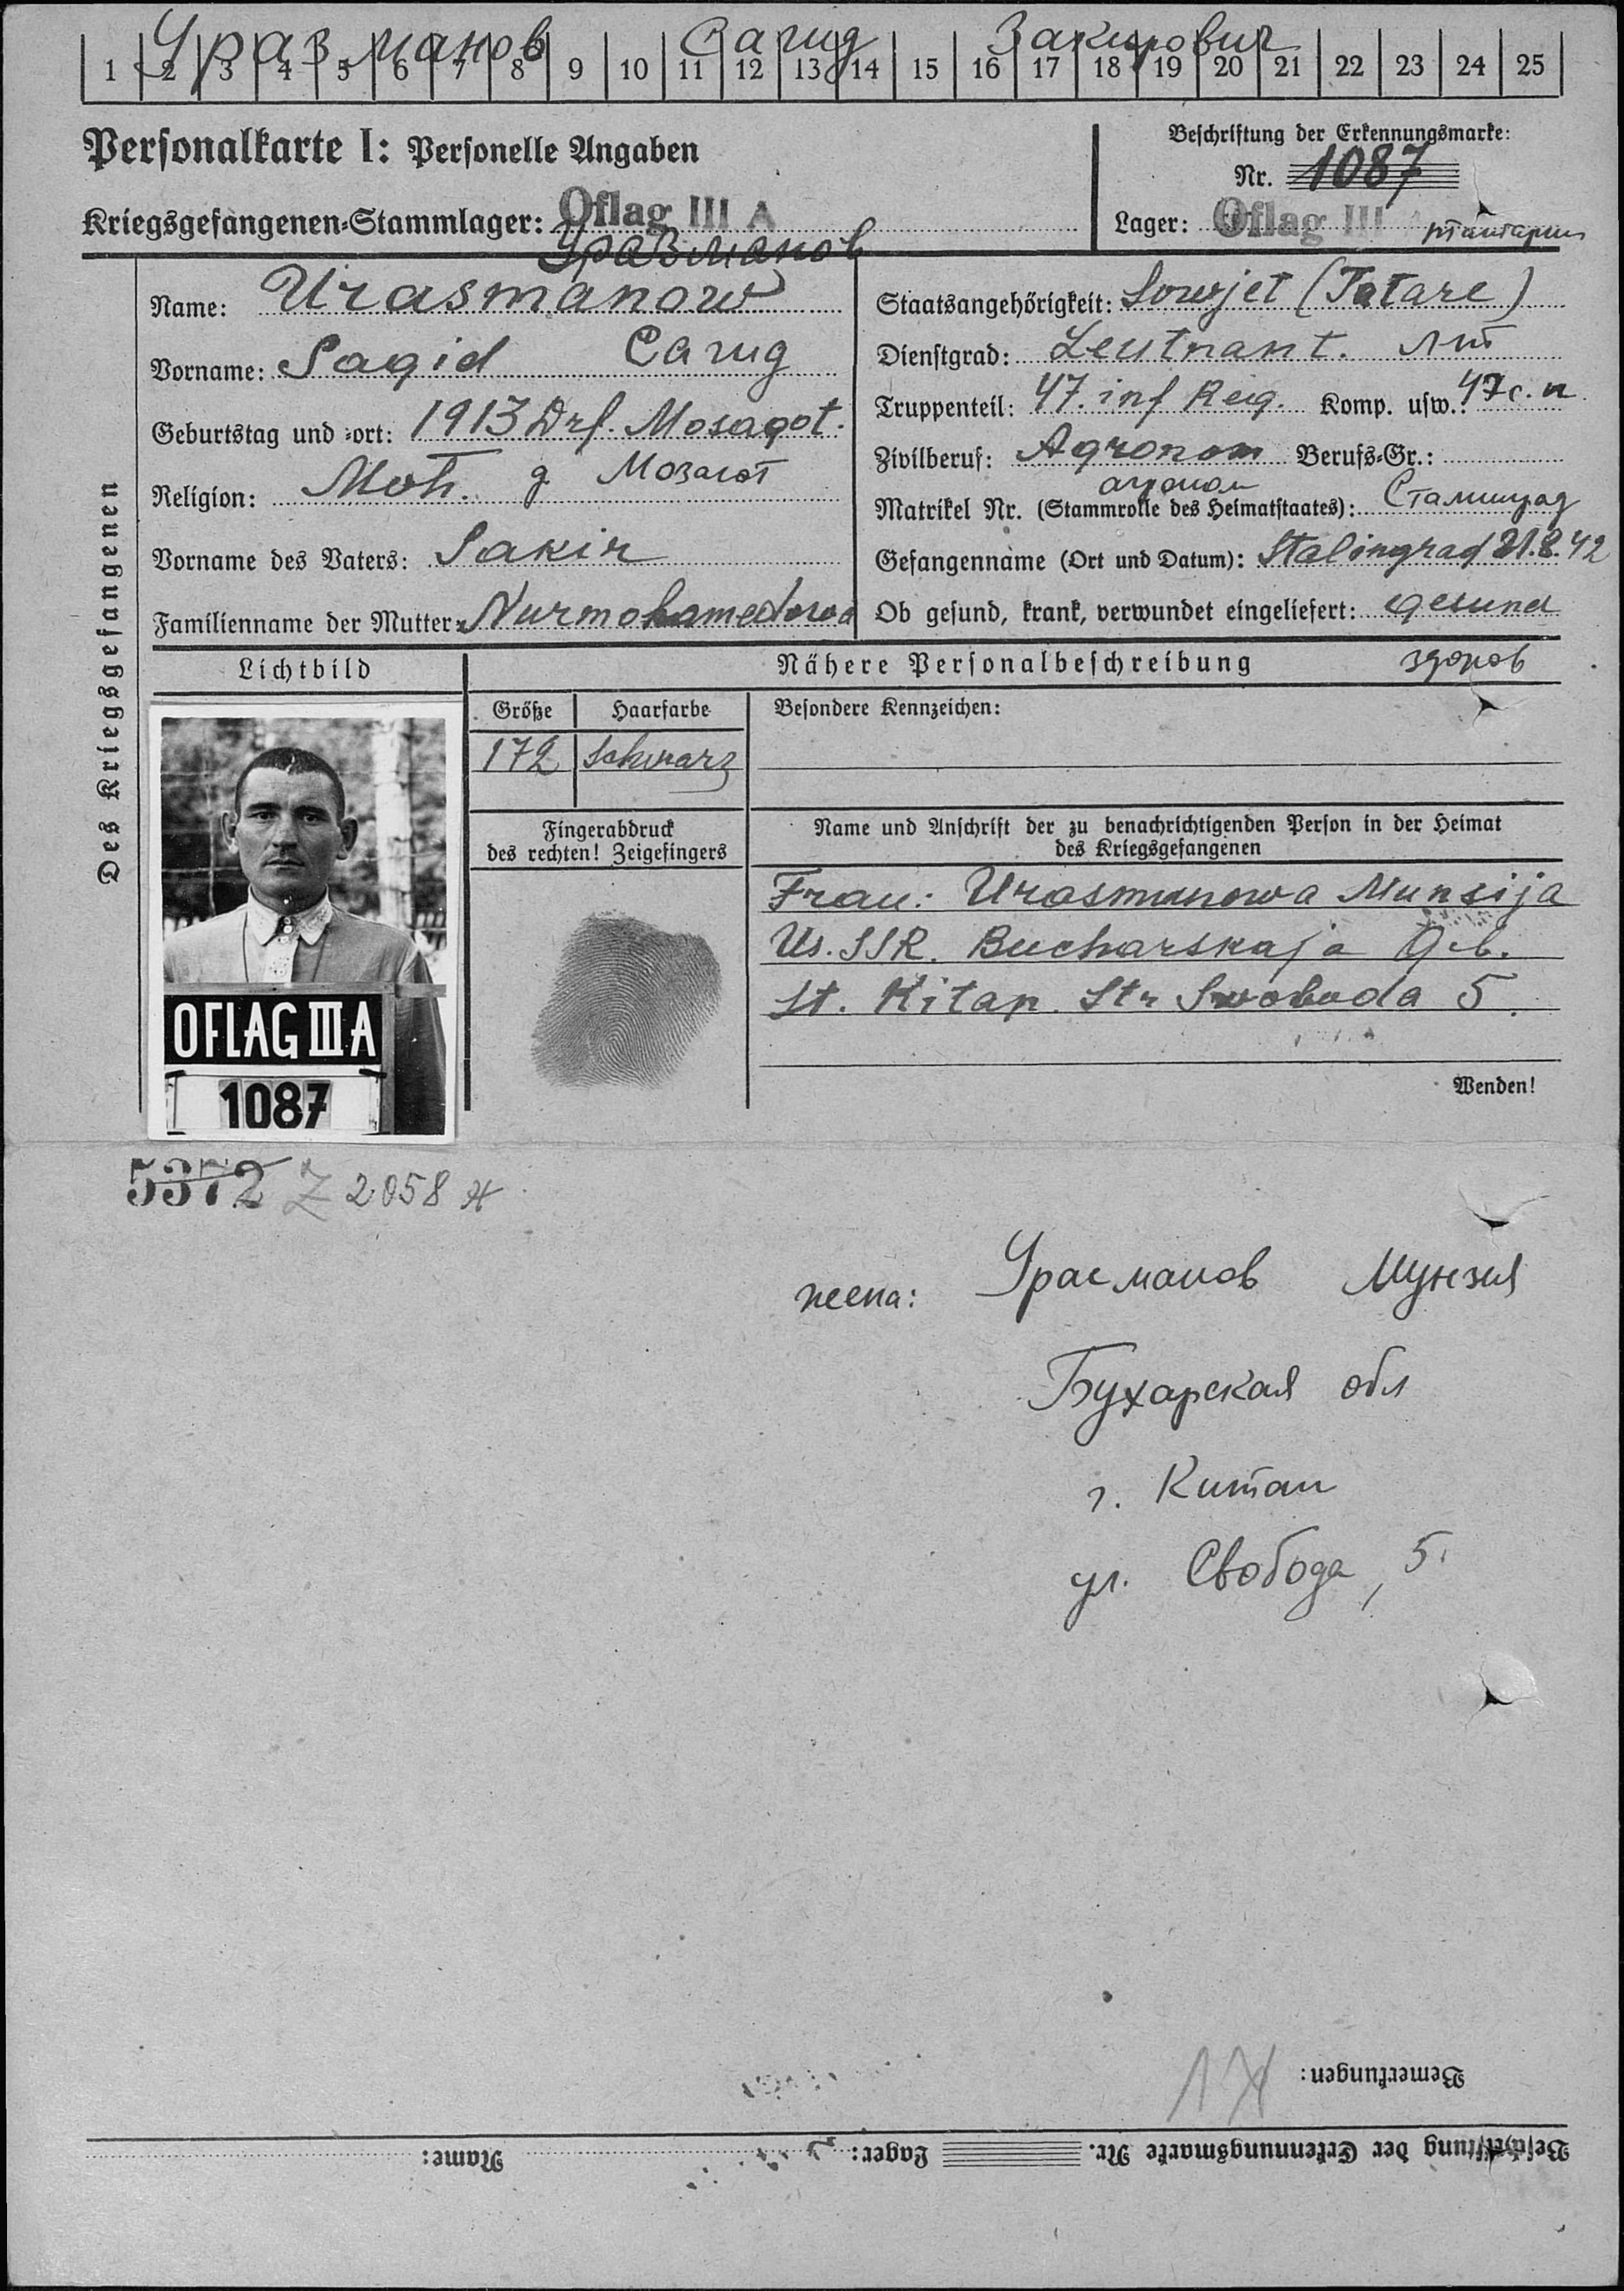 Уразманов Сагид Закирович
1 2 3 4 5 6 7 8 9 10 11 12 13 14 15 16 17 18 19 20 21 22 23 24 25
Personalkarte I: Personelle Angaben
Beschriftung der Erkennungsmarke:
Nr. 1087
Kriegsgefangenen-Stammlager: Oflag III A
Lager: Oflag III A татарин
Уразманов
Des Kriegsgefangenen
Name: Urasmanow
Vorname: Sagid Сагид
Geburtstag und -ort: 1913 Drf. Mosagot.
Religion: Moh. д Мозагот
Vorname des Vaters: Sakir
Familienname der Mutter: Nurmohamedowa
Staatsangehörigkeit: Sowjet (Tatare)
Dienstgrad: Leutnant. лт
Truppenteil: 47. inf Reig. Komp. usw.: 47 с. п
Zivilberuf: Agronom Berufs-Gr.:
агроном
Matrikel Nr. (Stammrolle des Heimatstaates): Сталинград
Gefangenname (Ort und Datum): Stalingrad 21.8.42
Ob gesund, krank, verwundet eingeliefert: gesund
Lichtbild
Nähere Personalbeschreibung здоров
Größe Haarfarbe
172 schwarz
Besondere Kennzeichen:
Fingerabdruck
des rechten! Zeigefingers
Name und Anschrift der zu benachrichtigenden Person in der Heimat
des Kriegsgefangenen
Frau: Urasmanowa Munsija
Us. SSR. Bucharskaja Geb.
St. Kitap. Str Swoboda 5.
Wenden!
OFLAG III A
1087
5372 Z 2058 H
жена: Урасманов Мунзия
Бухарская обл
г. Китап
ул. Свобода, 5.
Bemerkungen:
Beschriftung der Erkennungsmarke Nr. Lager: Name: